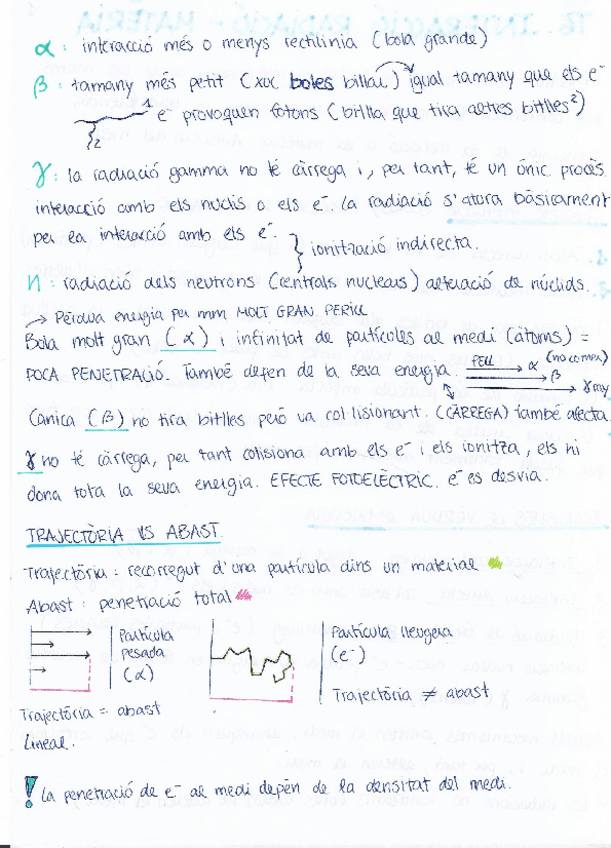 α : interacció més o menys rectilínia (bola grande)
β : tamany més petit (xoc boles billar) igual tamany que els e⁻
1 e⁻ provoquen fotons (bitlla que tira altres bitlles²)
2
γ : la radiació gamma no té càrrega i, per tant, té un únic procés
interacció amb els nuclis o els e⁻. La radiació s'atura bàsicament
per la interacció amb els e⁻.
} ionització indirecta.
n : radiació dels neutrons (centrals nuclears) alteració de núclids.
→ Pèrdua energia per mm MOLT GRAN. PERILL
Bola molt gran (α) i infinitat de partícules al medi (àtoms) =
POCA PENETRACIÓ. També depen de la seva energia.
PELL
α (no comeu)
β
γ ray
Canica (β) no tira bitlles però va col·lisionant. (CÀRREGA) també afecta.
γ no té càrrega, per tant colisiona amb els e⁻ i els ionitza, els hi
dona tota la seva energia. EFECTE FOTOELÈCTRIC. e⁻ es desvia.
TRAJECTÒRIA VS ABAST.
Trajectòria : recorregut d'una partícula dins un material
Abast : penetració total
Partícula
pesada
(α)
Partícula lleugera
(e⁻)
Trajectòria ≠ abast
Trajectòria = abast
Lineal.
! La penetració de e⁻ al medi depèn de la densitat del medi.